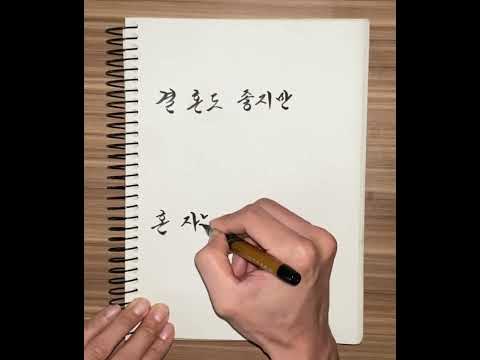 결혼도 좋지만
혼자